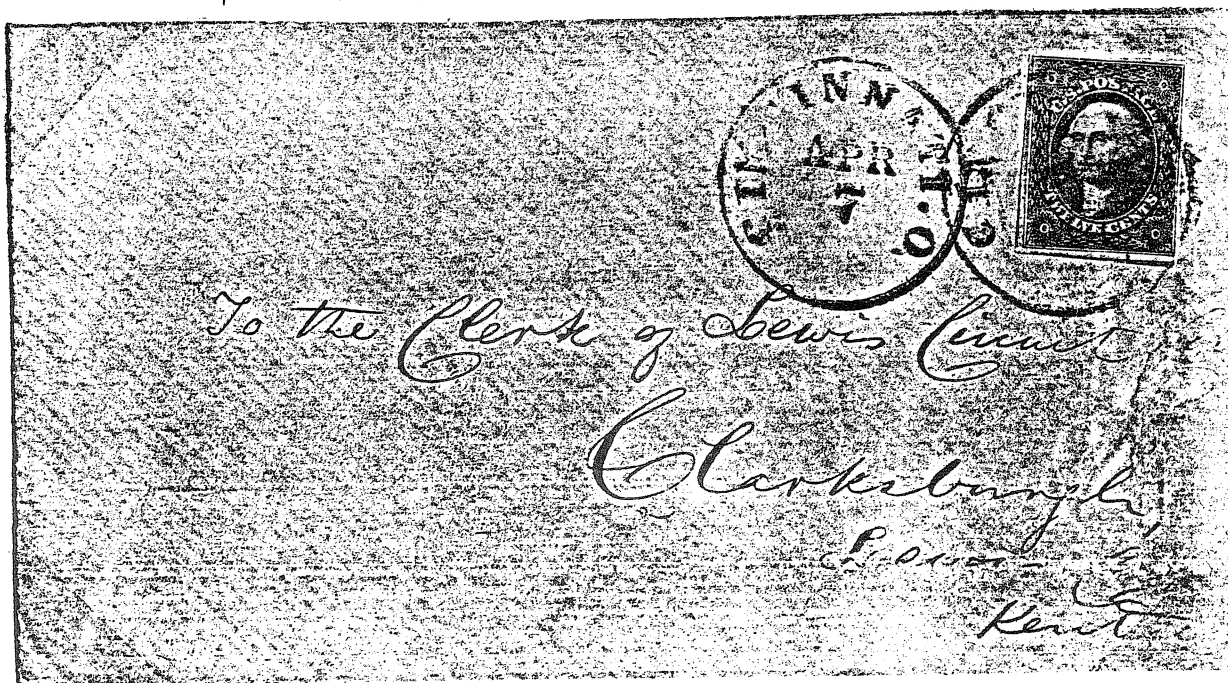 CINCINNATI.O.
APR
7
CIN
U.S. POSTAGE
TWELVE CENTS
To the Clerk of Lewis Circuit
Clarksburgh,
Lewis
Kent